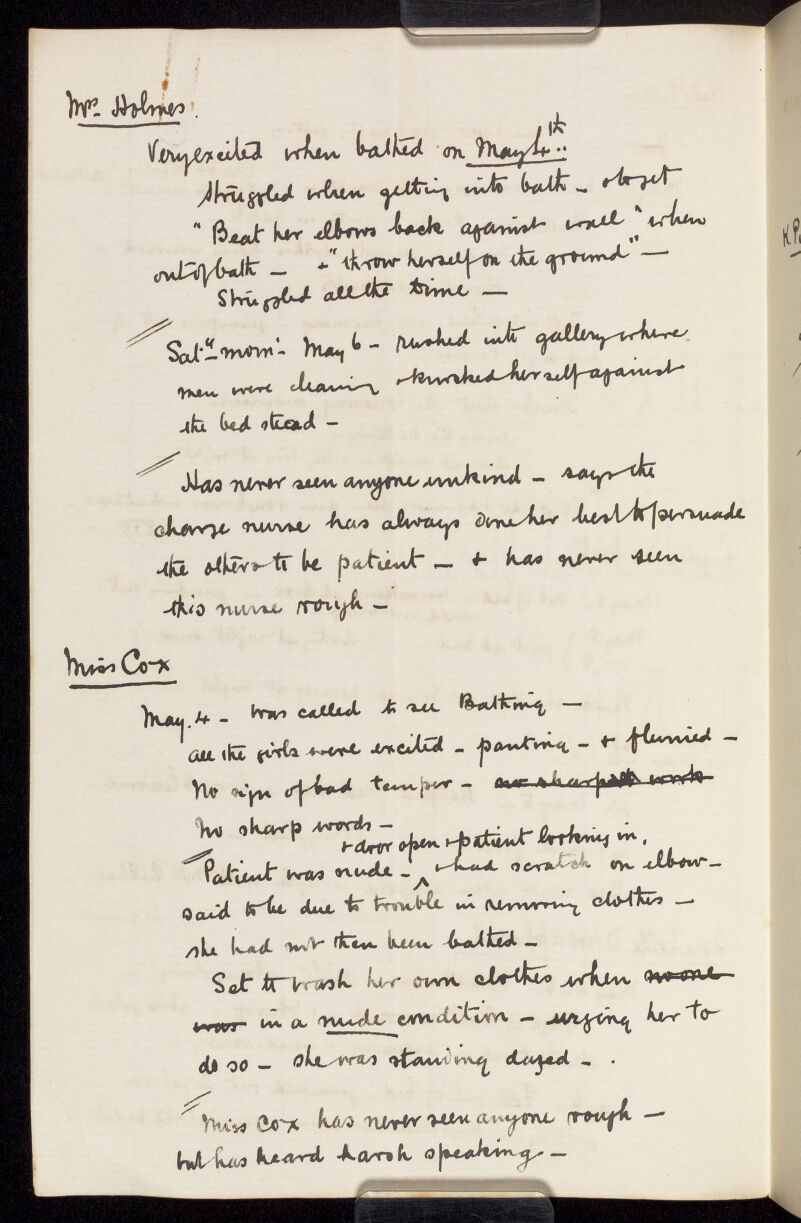 Mrs. Holmes.
Very excited when bathed on May 4th..
Struggled when getting into bath - & to get
"Beat her elbows back against wall" when
out of bath - & "throw herself on the ground" -
Struggled all the time -
Saty. morng. May 6 - rushed into gallery where
men were cleaning & knocked herself against
the bed stead -
Has never seen anyone unkind - says the
charge nurse has always done her best to persuade
the others to be patient - & has never seen
this nurse rough -
Miss Cox
May. 4 - Was called to see Bathing -
all the girls were excited - panting - & flurried -
No sign of bad temper - no sharp work
No sharp words -
& door open & patient looking in,
Patient was nude - ^ & had scratch on elbow -
said to be due to trouble in removing clothes -
she had not then been bathed -
Set to wash her own clothes when no one
was in a nude condition - urging her to
do so - she was standing dazed - .
Miss Cox has never seen anyone rough -
but has heard harsh speaking -
K.P